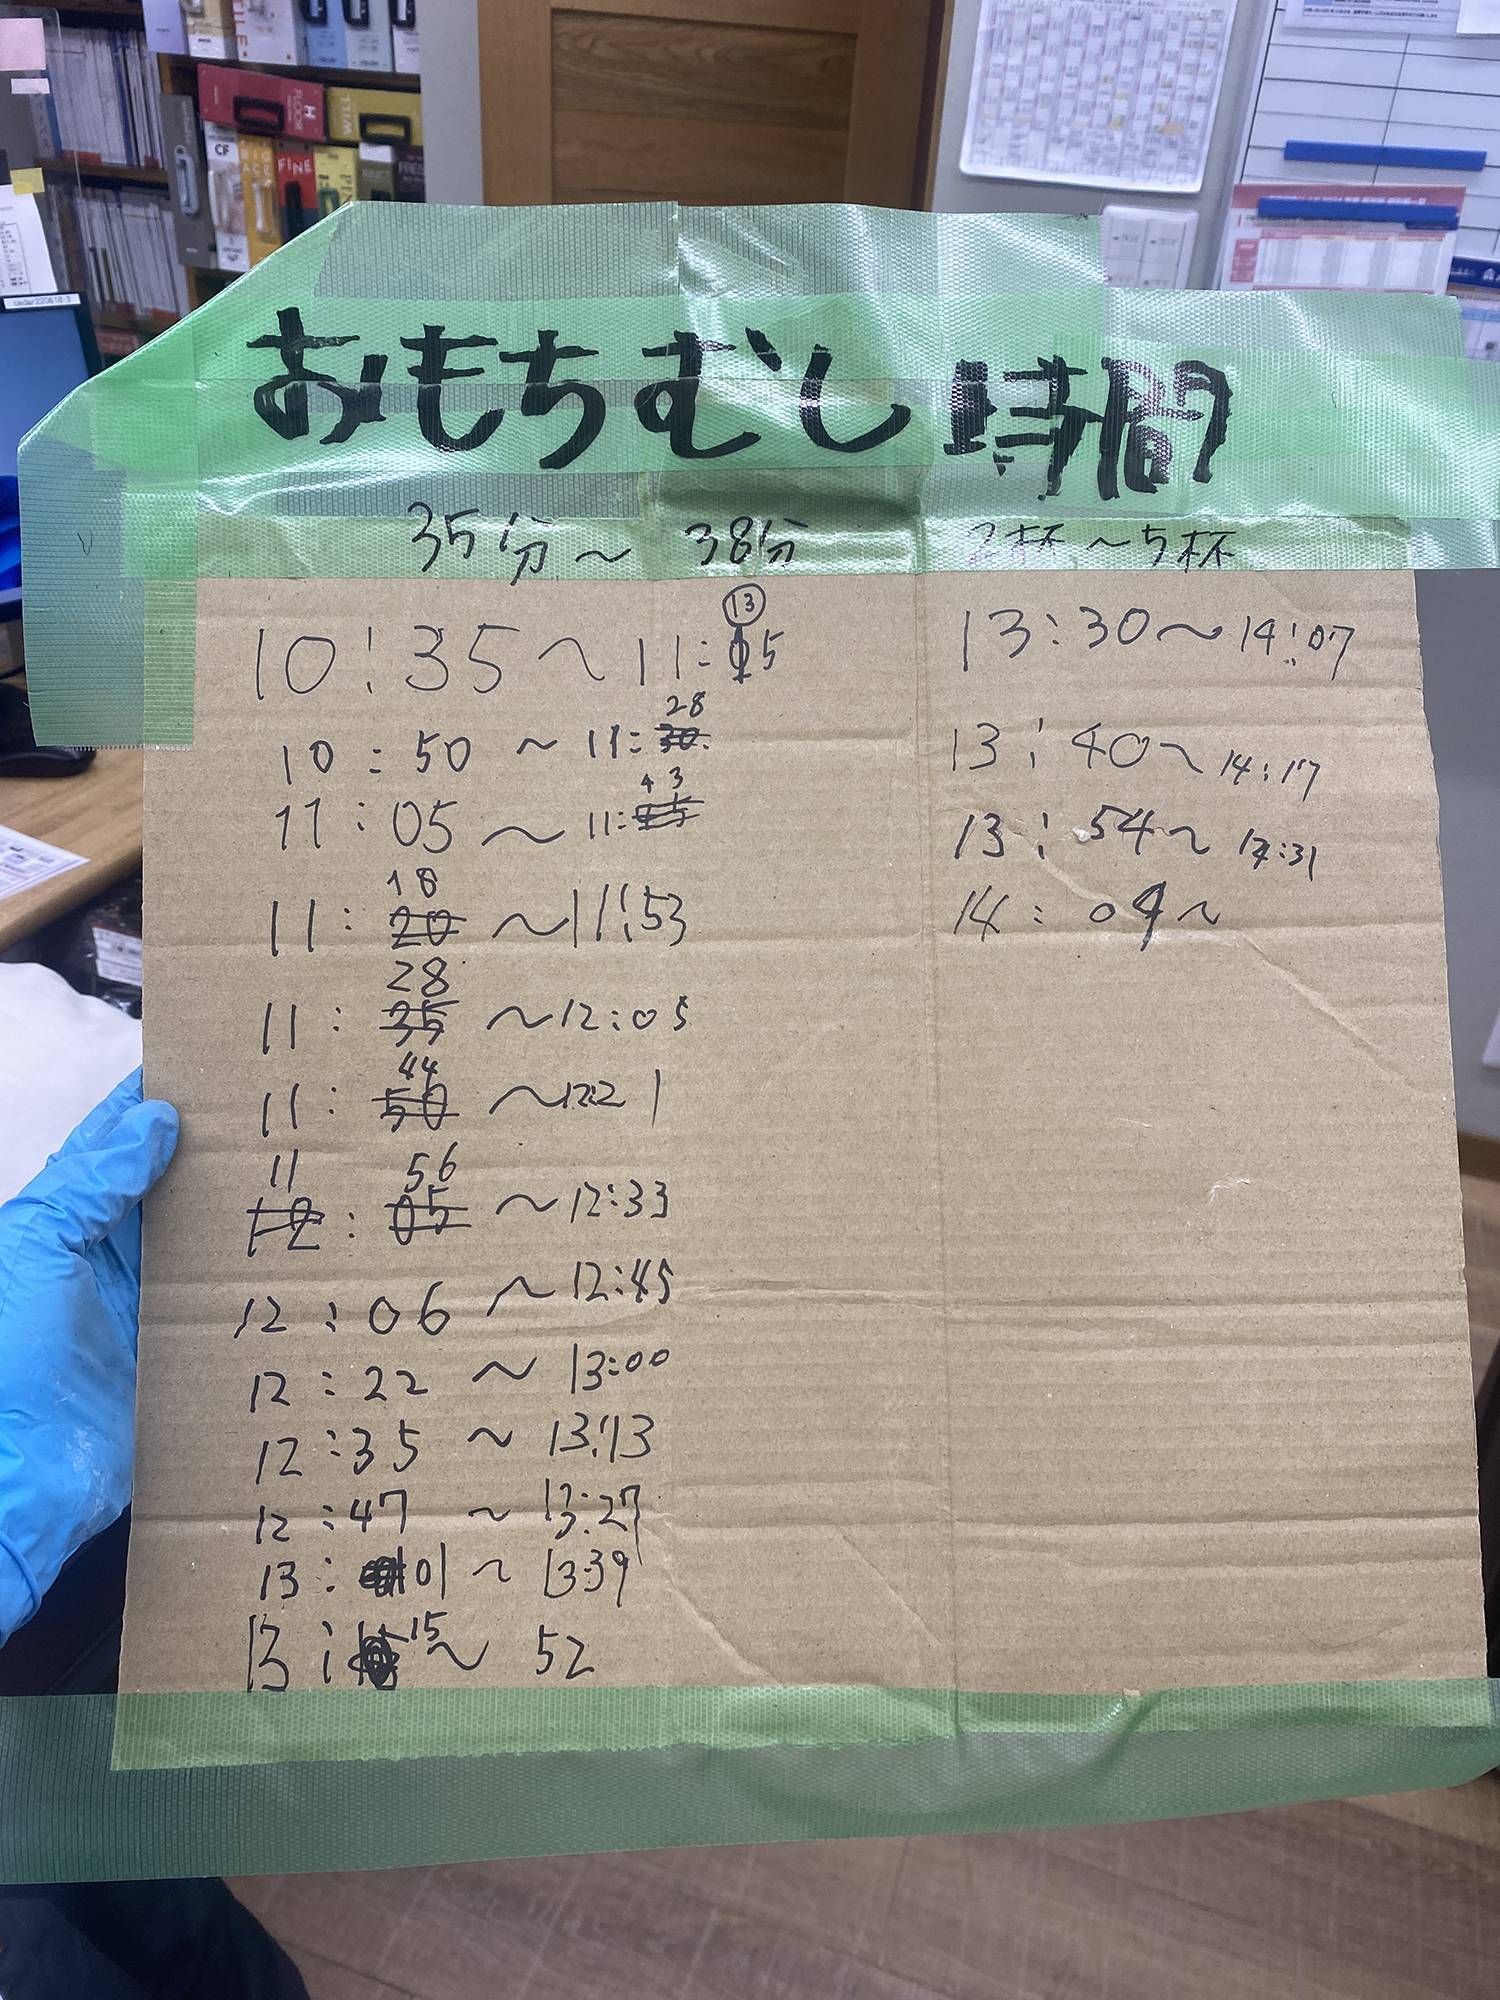 CF
FINE
WILL
H
FLOOR
FREE
おもちむし時間
35分〜38分 2杯〜5杯
10:35〜11:15
13
10:50〜11:30
28
11:05〜11:
43
18
11:20〜11:53
28
11:35〜12:05
44
11:50〜12:21
11 56
12:05〜12:33
12:06〜12:45
12:22〜13:00
12:35〜13:13
12:47〜13:27
13:01〜13:39
13:15〜52
13:30〜14:07
13:40〜14:17
13:54〜14:31
14:09〜